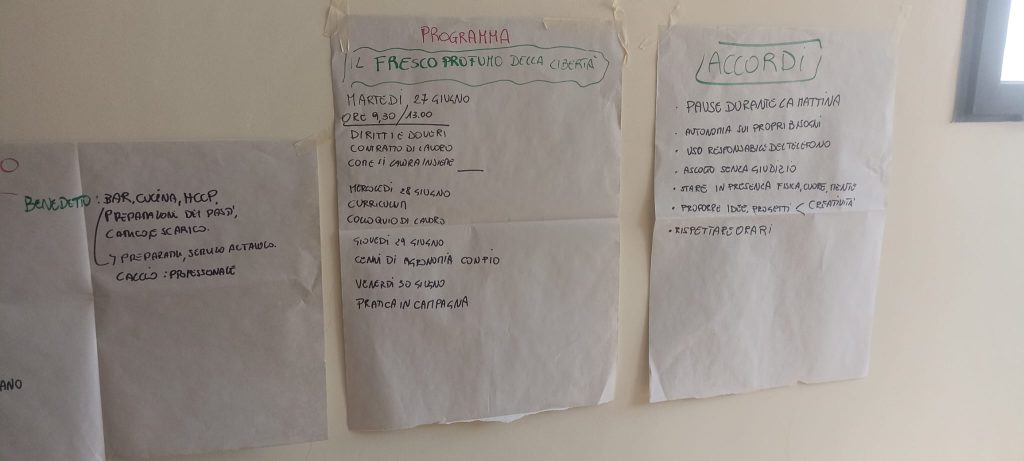 O
BENEDETTO: BAR, CUCINA, HCCP,
PREPARAZIONI DEI PASTI,
CARICO E SCARICO.
→ PREPARATIV, SERVIZIO AL TAVOLO.
CALCIO: PROFESSIONALE
ANO
PROGRAMMA
IL FRESCO PROFUMO DELLA LIBERTA'
MARTEDI 27 GIUGNO
ORE 9,30/13.00
DIRITTI E DOVERI
CONTRATTO DI LAVORO
COME SI LAVORA INSIEME
MERCOLEDI 28 GIUGNO
CURRICULUM
COLLOQUIO DI LAVORO
GIOVEDI 29 GIUGNO
CENNI DI AGRONOMIA CON PIO
VENERDI 30 GIUGNO
PRATICA IN CAMPAGNA
ACCORDI
• PAUSE DURANTE LA MATTINA
• AUTONOMIA SUI PROPRI BISOGNI
• USO RESPONSABILE DEL TELEFONO
• ASCOLTO SENZA GIUDIZIO
• STARE IN PRESENZA FISICA, CUORE, MENTE
• PROPORRE IDEE, PROGETTI < CREATIVITA'
• RISPETTARE ORARI